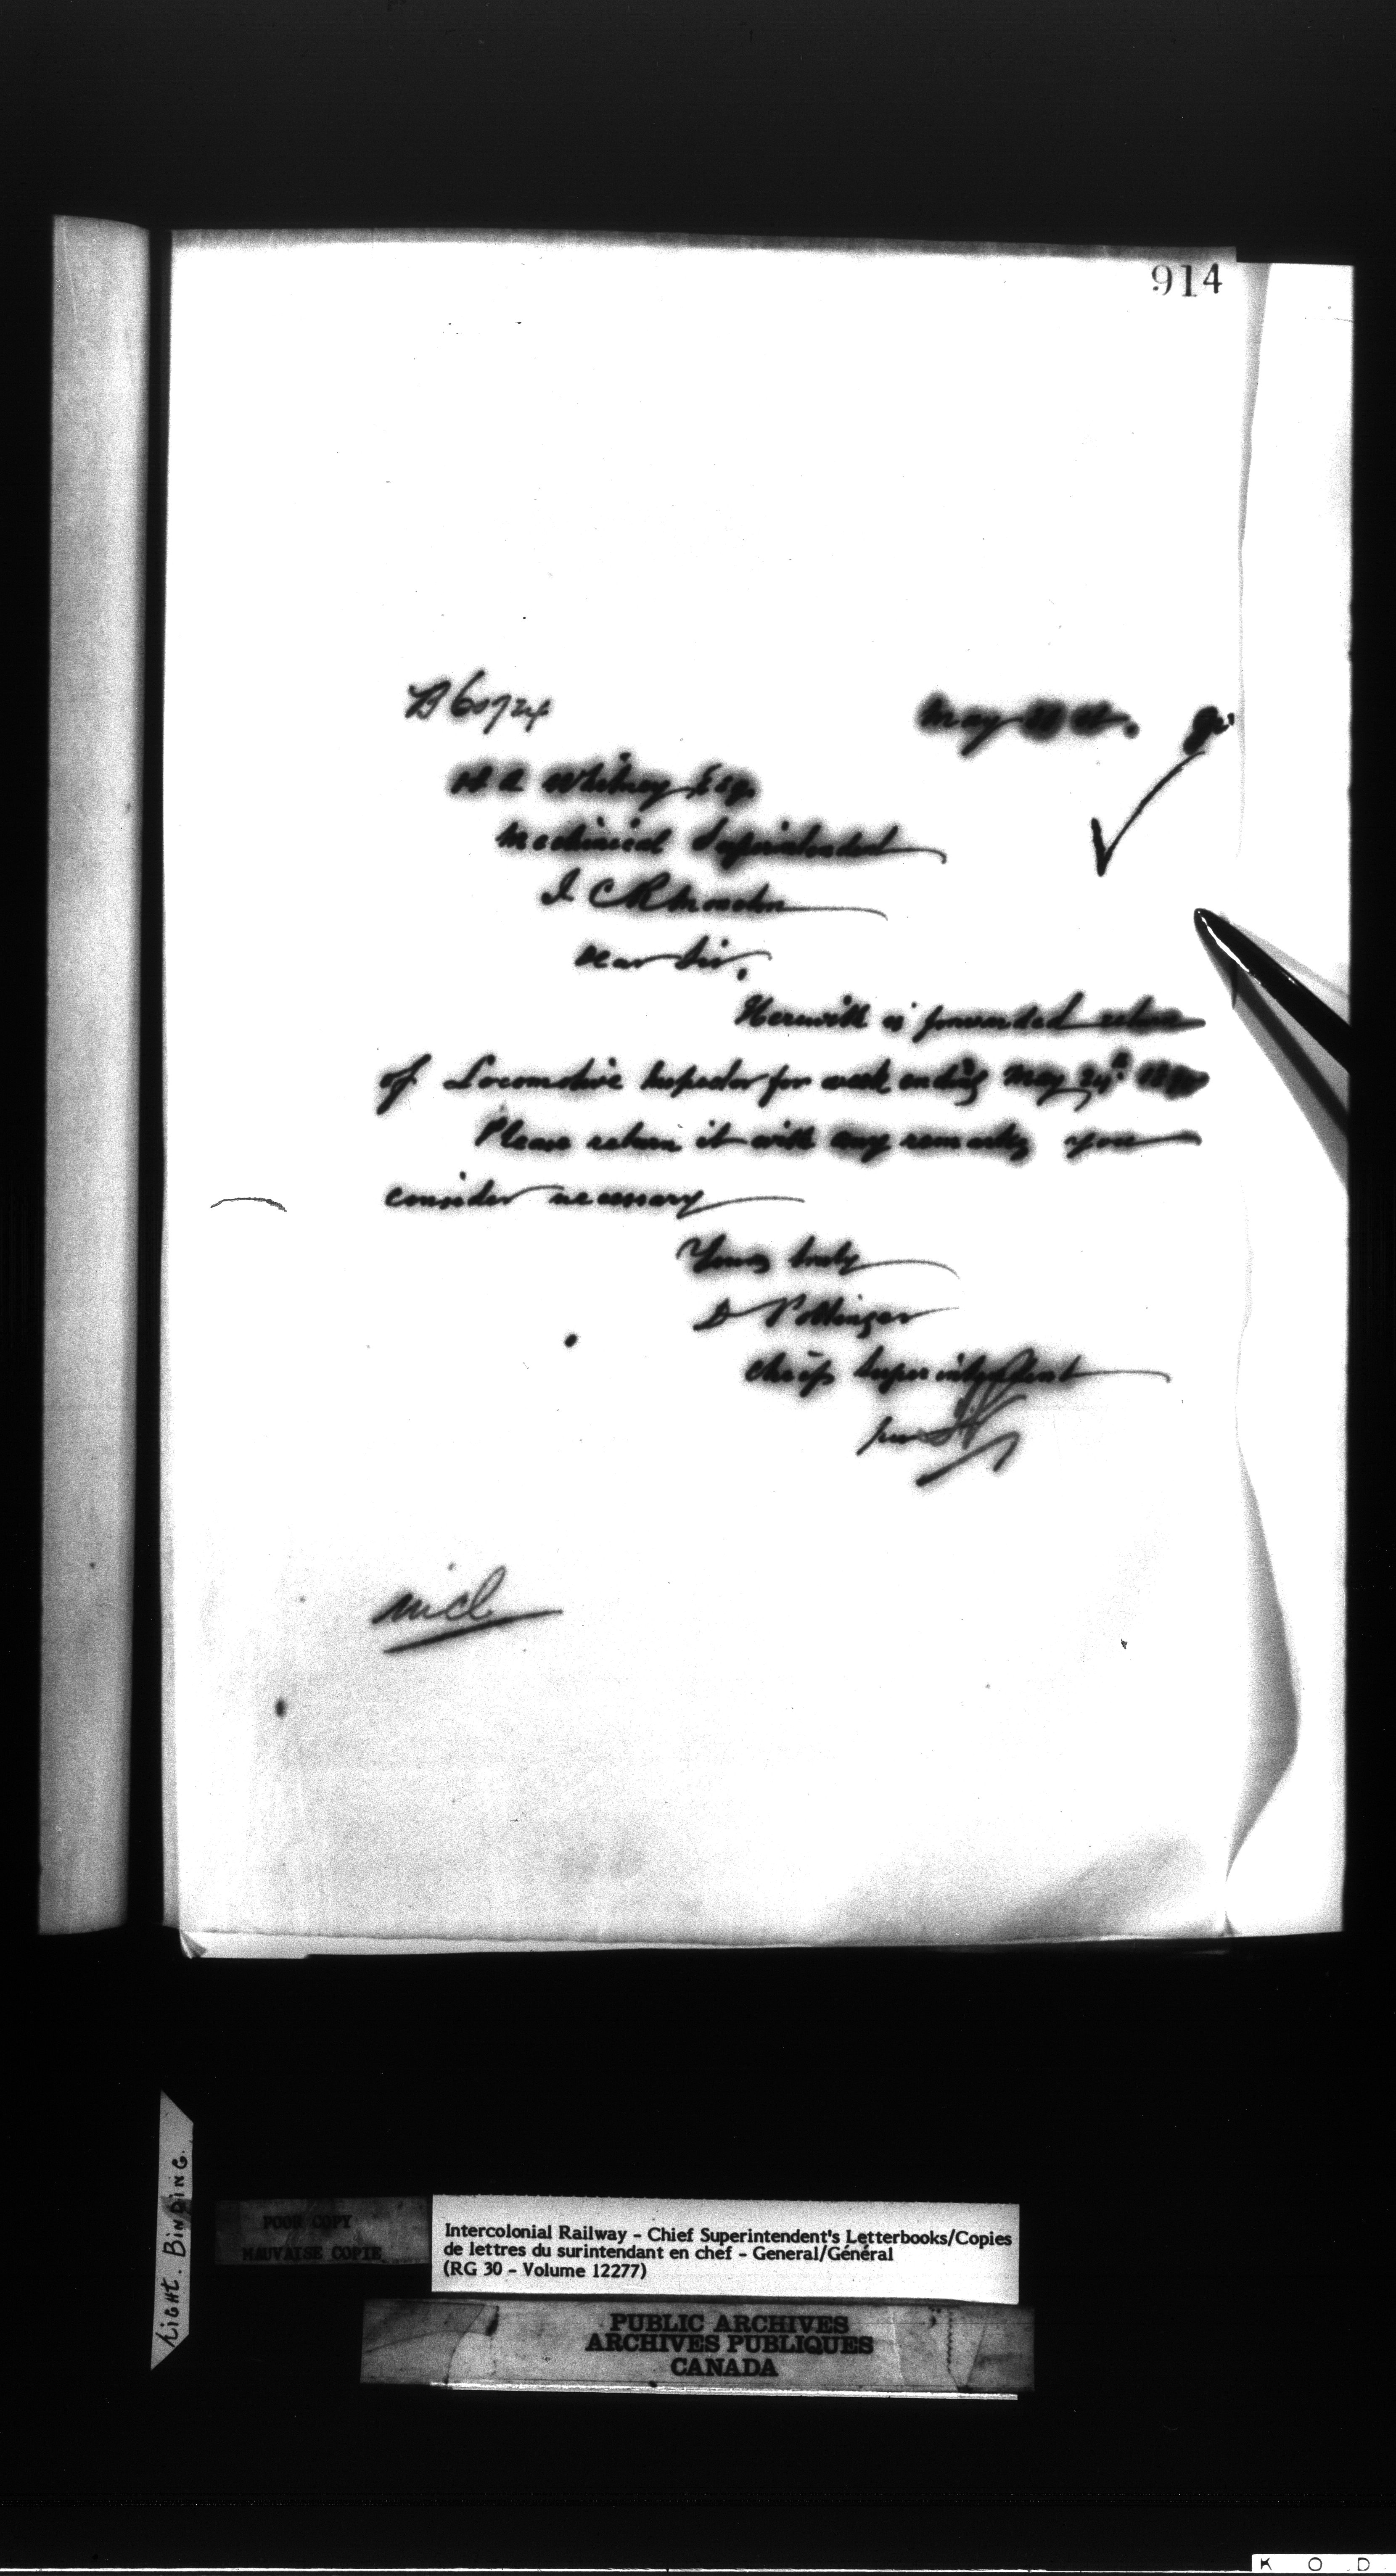 914
B 60724
May
H A Whitney Esq.
Mechanical Superintendent
I C R Moncton
Dear Sir,
Herewith is forwarded return
of Locomotive Inspector for week ending May 24th
Please return it with any remarks you
consider necessary
Yours truly
D Pottinger
Chief Superintendent
per
LIGHT. BINDING.
POOR COPY
MAUVAISE COPIE
Intercolonial Railway - Chief Superintendent's Letterbooks/Copies
de lettres du surintendant en chef - General/Général
(RG 30 - Volume 12277)
PUBLIC ARCHIVES
ARCHIVES PUBLIQUES
CANADA
K O D